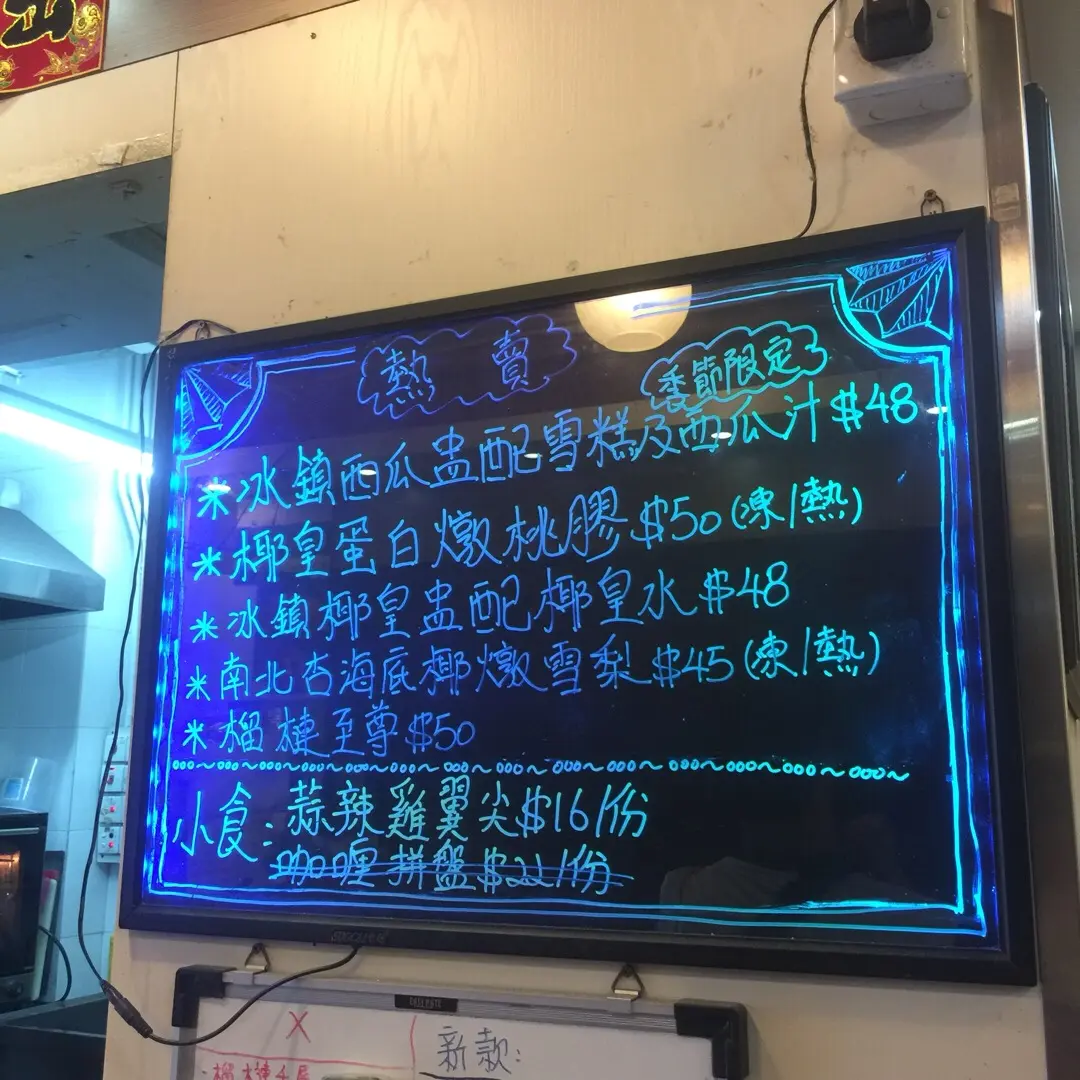 熱 賣
季節限定
*冰鎮西瓜盅配雪糕及西瓜汁$48
*椰皇蛋白燉桃膠$50(凍/熱)
*冰鎮椰皇盅配椰皇水$48
*南北杏海底椰燉雪梨$45(凍/熱)
*榴槤至尊$50
小食:蒜辣雞翼尖$16/份
咖喱拼盤$22/份
X
新款: